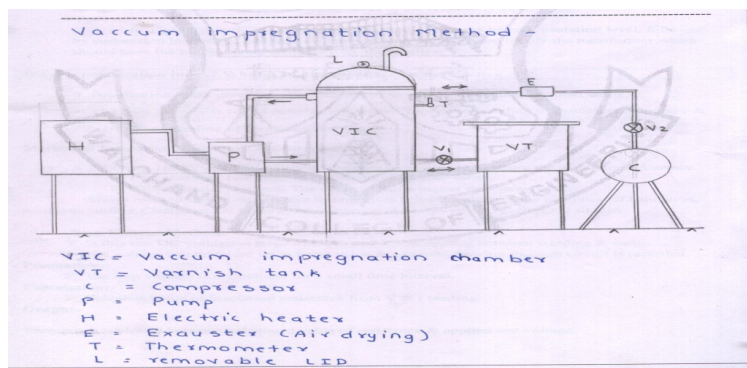 Vaccum impregnation method -
L
E
T
H
VIC
V2
P
V1
VT
C
WALCHAND COLLEGE OF ENGINEERING
VIC = Vaccum impregnation chamber
VT = Varnish tank
C = Compressor
P = Pump
H = Electric heater
E = Exauster (Air drying)
T = Thermometer
L = removable LID